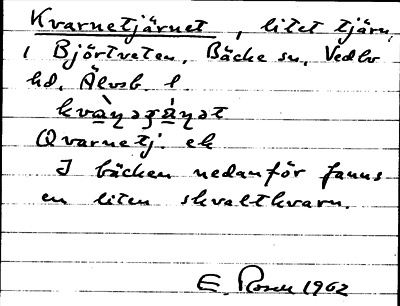 Kvarnetjärnet, litet tjärn,
i Björtveten, Bäcke sn, Vedbo
hd. Älvsb. l
Qvarnetj. ek
I bäcken nedanför fanns
en liten skvaltkvarn.
E. Rosen 1962